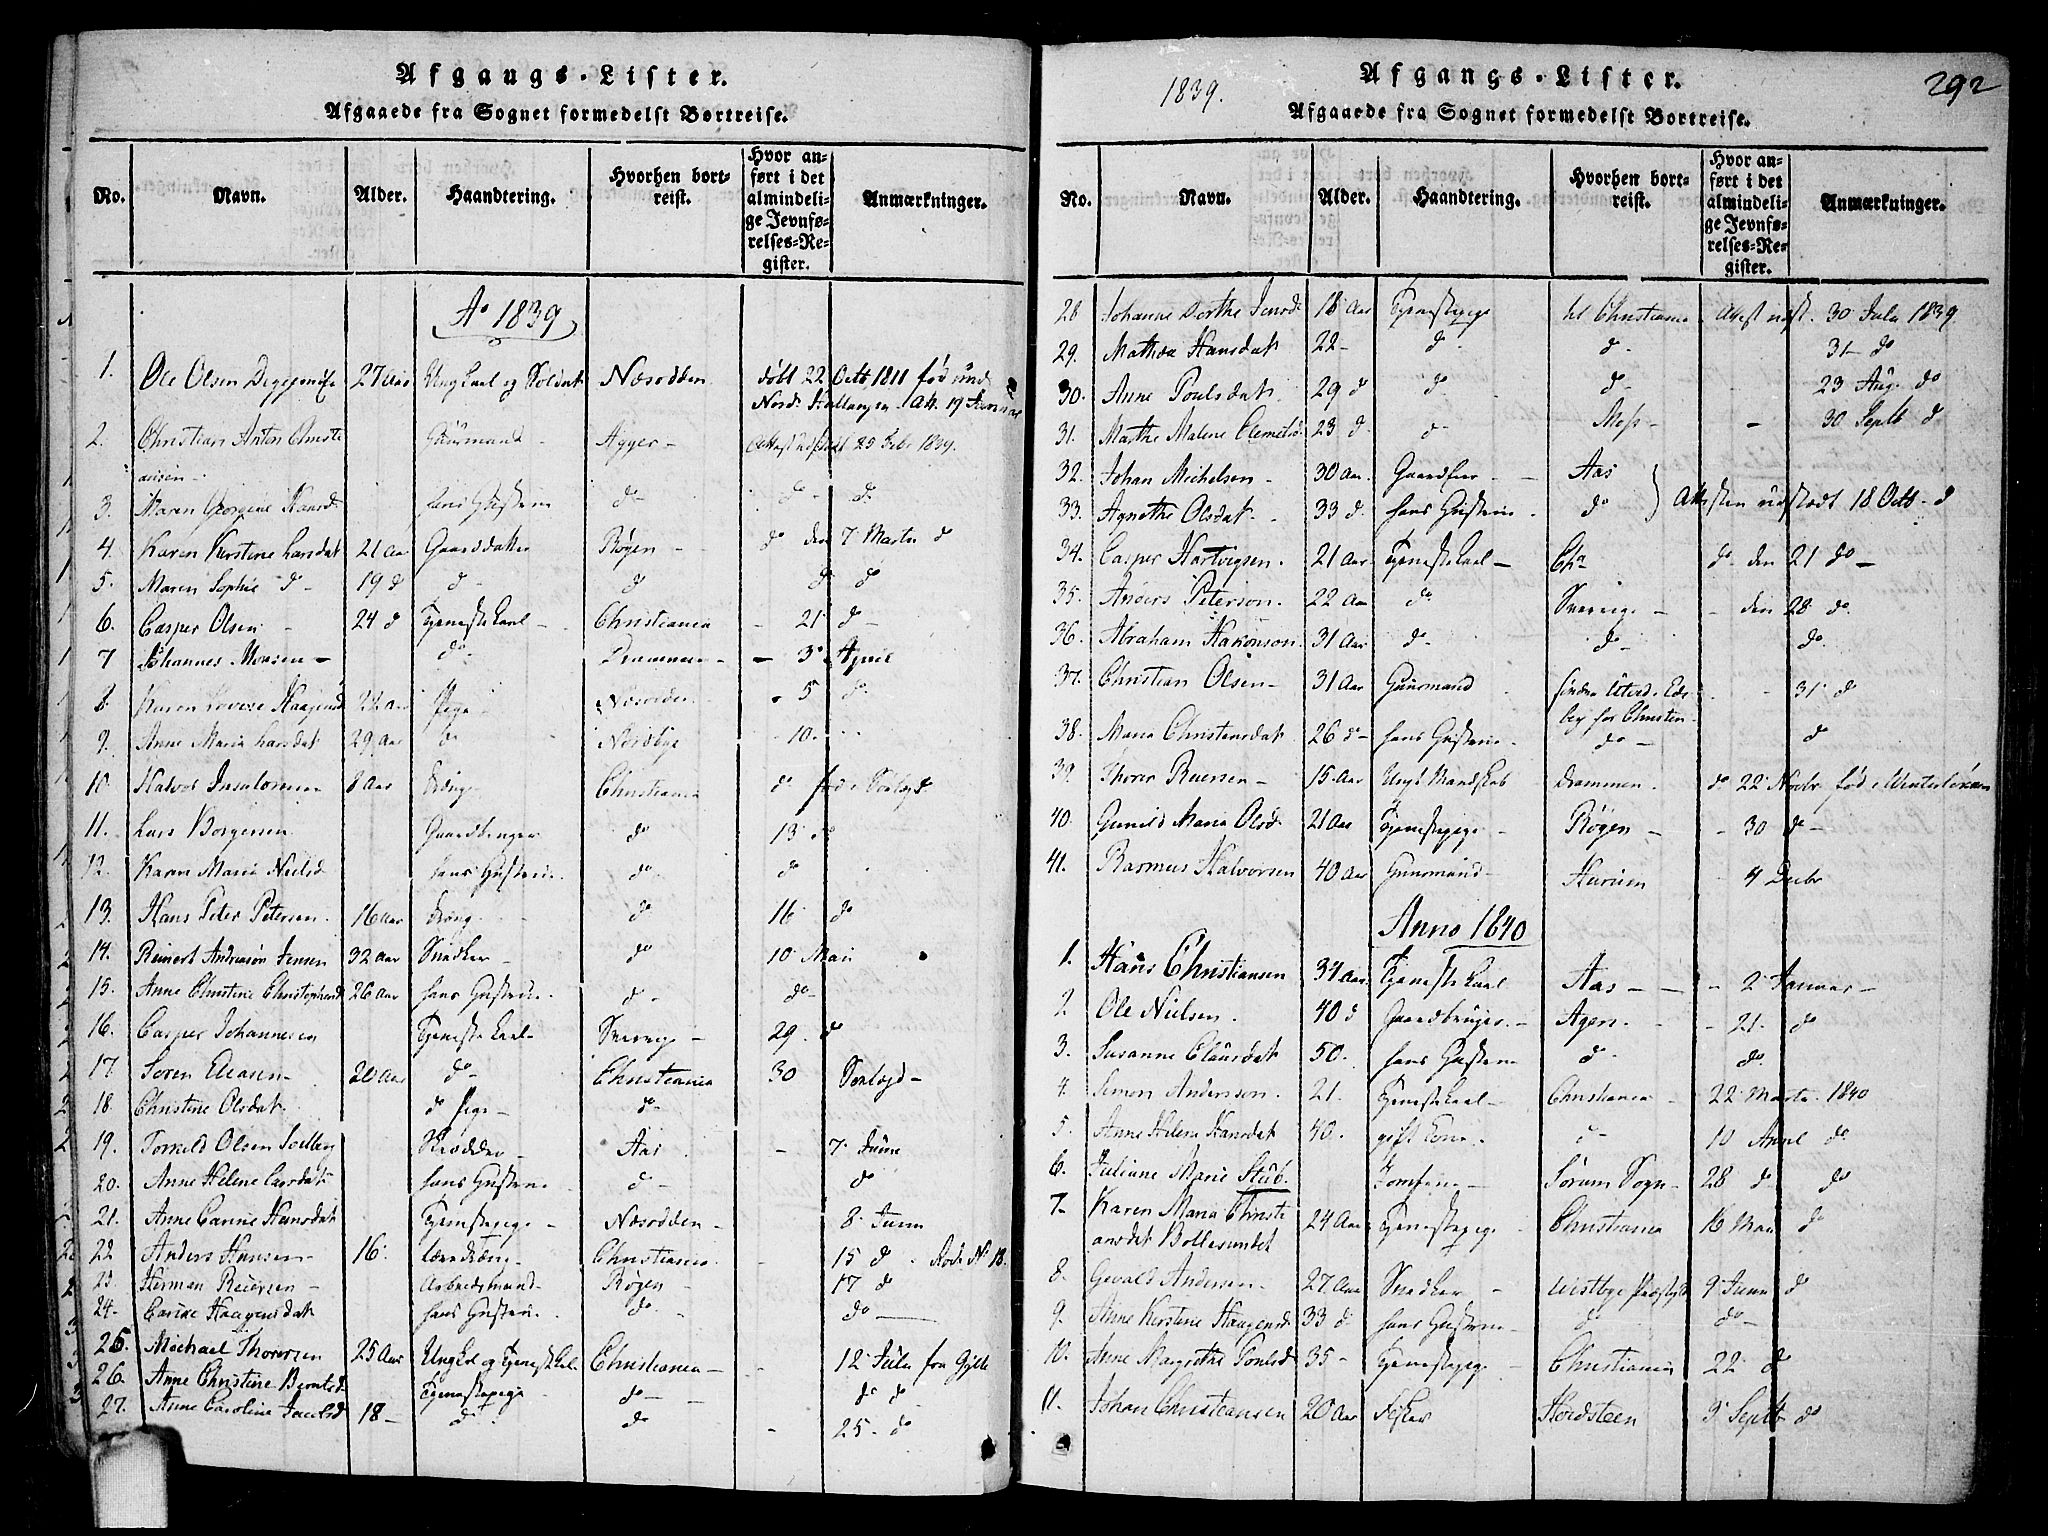 Afgangs-Lister.
Afgaaede fra Sognet formedelst Bortreise.
No. Navn. Alder. Haandtering. Hvorhen bortreist. Hvor anført i det almindelige Jevnførelses-Register. Anmærkninger.
Ao 1839
1. Ole Olsen 27 Aar Ungkarl og Soldat Næsodden døbt 22 Octb 1811 fød
Att. 19 Januar
2. Christian Anton Christi Huusmand - Agger - Attest udstædt 25 Febr 1839.
ansen -
3. Maren Georgine Hansd hans Hustrue do - do - do
4. Karen Kirstine Larsdat 21 Aar Gaarddatter Røgen - do den 7 Marts do
5. Maren Sophie do - 19 do do - do do do
6. Casper Olsen - 24 do Tjenestekarl - Christiania - 21 do -
7 Johannes Monsen - do - Drammen - - 3 April
8. Karen 22 Aar Pige Næsodden - 5 do
9. Anne Maria Larsdat 29 Aar do Nesodbye - 10. -
10. Halvor 8 Aar Dreng Christiania do fød
11. Lars Borgersen Gaardbruger do 13 do
12. Karen Maria Nielsd hans Hustrue do do
13. Hans Peter Petersen 16 Aar Dreng do 16 do
14. Reinert Andreasøn Jensen 32 Aar Snedker - do 10 Mai
15. Anne Christine Christophersd 26 Aar hans Hustrue do - do -
16. Casper Johannesen Tjenestekarl - Sverrig - 29. do
17. Søren Eliasen - 20 Aar do - Christiania 30
18. Christine Olsdat. do Pige - do -
19. Torkild Olsen Solberg Skrædder - Aas - 7 Juni
20. Anne Helene Larsdat hans Hustrue do - do
21. Anne Hansdat Tjenestepige - Næsodden - 8 Juni
22 Anders Hansen - 16. Christiania - 15 do
23. Herman Reiersen - Arbeidsmand - Røgen - 17 do
24. Haagensdat hans Hustrue do - do -
25. Michael Thoresen 25 Aar Ungkl og Tjenestekarl Christiania - - 12 Juli fra
26. Anne Christine Berntsd Tjenestepige do - do do
27. Anne Caroline 18 - do do - 25 - do
1839.
Afgangs-Lister.
292
Afgaaede fra Sognet formedelst Bortreise.
No. Navn. Alder. Haandtering. Hvorhen bortreist. Hvor anført i det almindelige Jevnførelses-Register. Anmærkninger.
28 Johanne Dorthe Jensd 18 Aar Tjenestepige til Christiania Attest udst. 30 Juli 1839
29. Mathea Hansdat 22 - do - do - 31 - do
30. Anne Poulsdat 29 do do do - 23 Aug. do
31. Marthe Malene Clemetsd 23 do do - Moss - - 30 Septb do
32. Johan Michelsen - 30 Aar Aas
33. Agnethe Olsdat - 33 do hans Hustrue - do Attesten udstædt 18 Octb - do
34. Casper Hartvigsen. 21 Aar Tjenestekarl - Cha do den 21 do -
35. Anders Peterson. 22 Aar do Sverrig - - den 28 do
36. Abraham Hakonson 31 Aar do - do - do
37. Christian Olsen - 31 Aar Huusmand - 31 do
38. Maria Christensdat 26 do - hans Hustrue - do - do
39. Thorer Reiersen - 15 Aar Ungt Mandskab Drammen. do 22 Novbr fød
40. Gunild Maria Olsd 21 Aar Tjenestepige - Røgen - - 30 do -
41. Rasmus Halvorsen 40 Aar Huusmand - Hurum - 4 Decbr
Anno 1840
1. Hans Christiansen 34 Aar Tjenestekarl Aas - - - 2 Januar -
2 Ole Nielsen. 40 do Gaardbruger. - Agers. - - 21. do
3. Susanne Clausdat 50. hans Hustrue do - do.
4. Simon Andersson. 21. Tjenestekarl - Christiania - 22 Marts 1840
5. Anne Helena Hansdat 40. gift Kone. do - 10 April do
6. Juliane Marie Stub. Jomfrue - Sørum Sogn - 28 do do
7. Karen Maria Christi 24 Aar Tjenestepige - Christiania 16 Mai do
ansdat Bollesundet
8. Andersen - 27 Aar Snedker - Westbye Præstgld 9 Juni do
9. Anne Kirstine Haagensd 33 do hans Hustrue - do do -
10. Anne Margrethe Poulsd 35 - Tjenestepige - Christiania 22 do
11. Johan Christiansen 20 Aar Fisker Hordsteen 3 Septb do